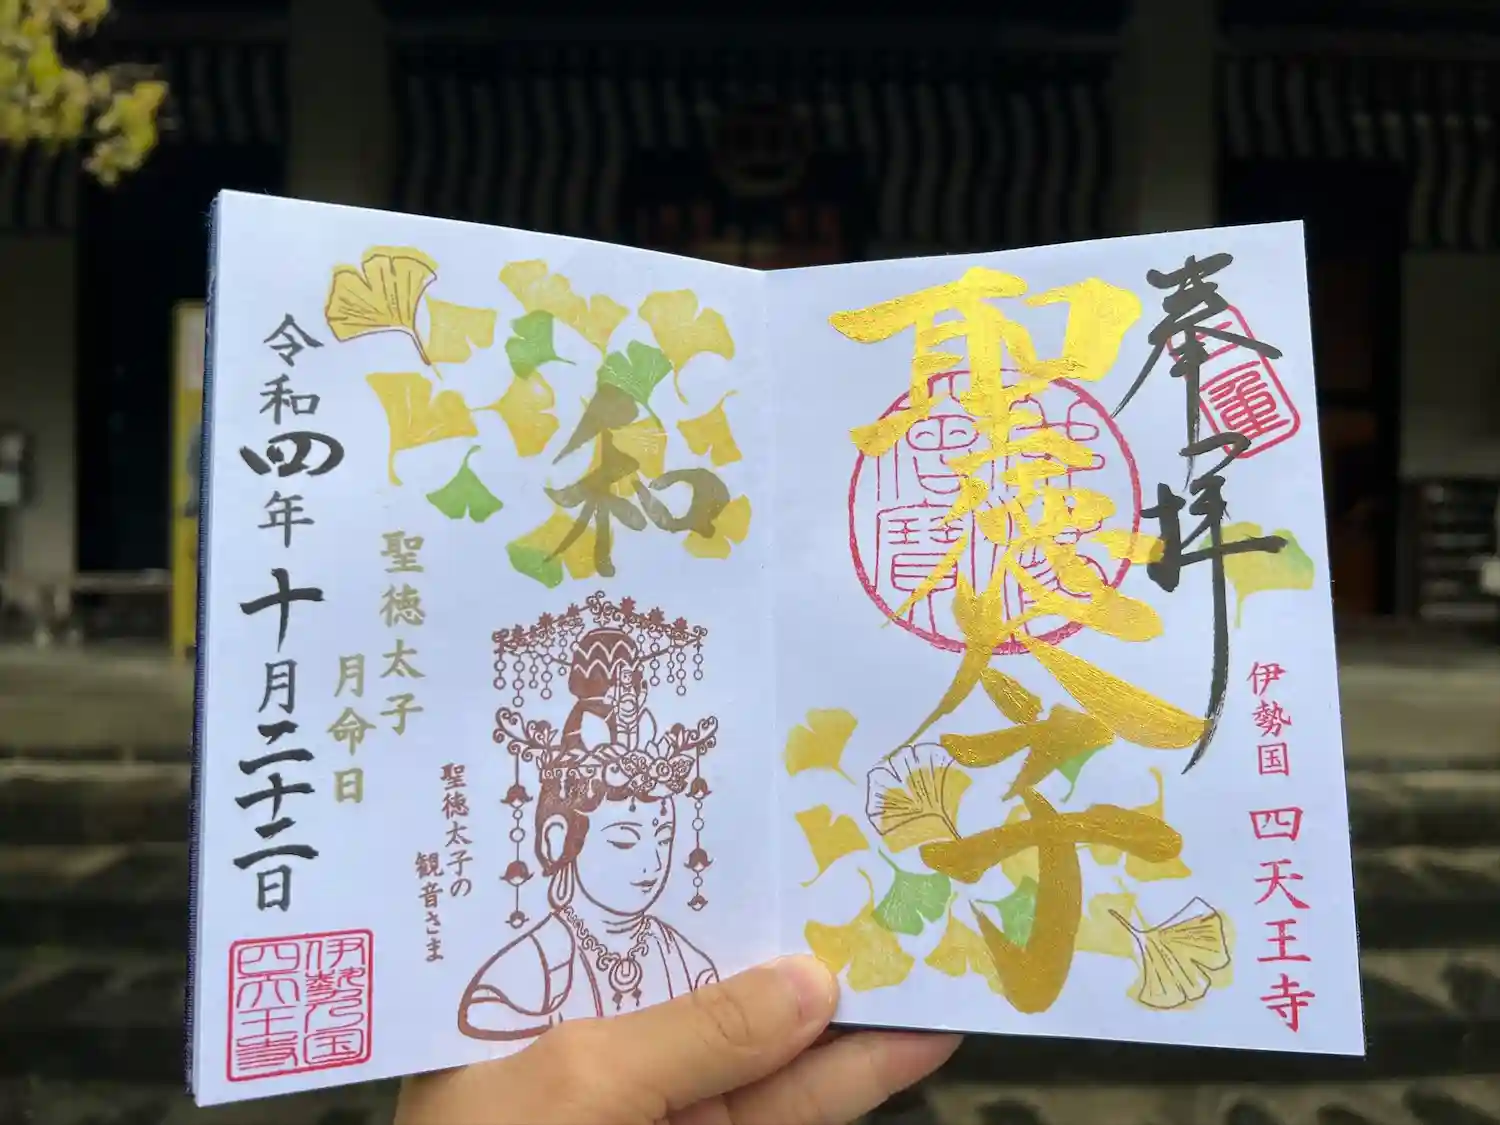 奉拝
聖徳太子
伊勢国 四天王寺
和
聖徳太子
月命日
聖徳太子の
観音さま
令和四年十月二十二日
伊勢乃国
四天王寺